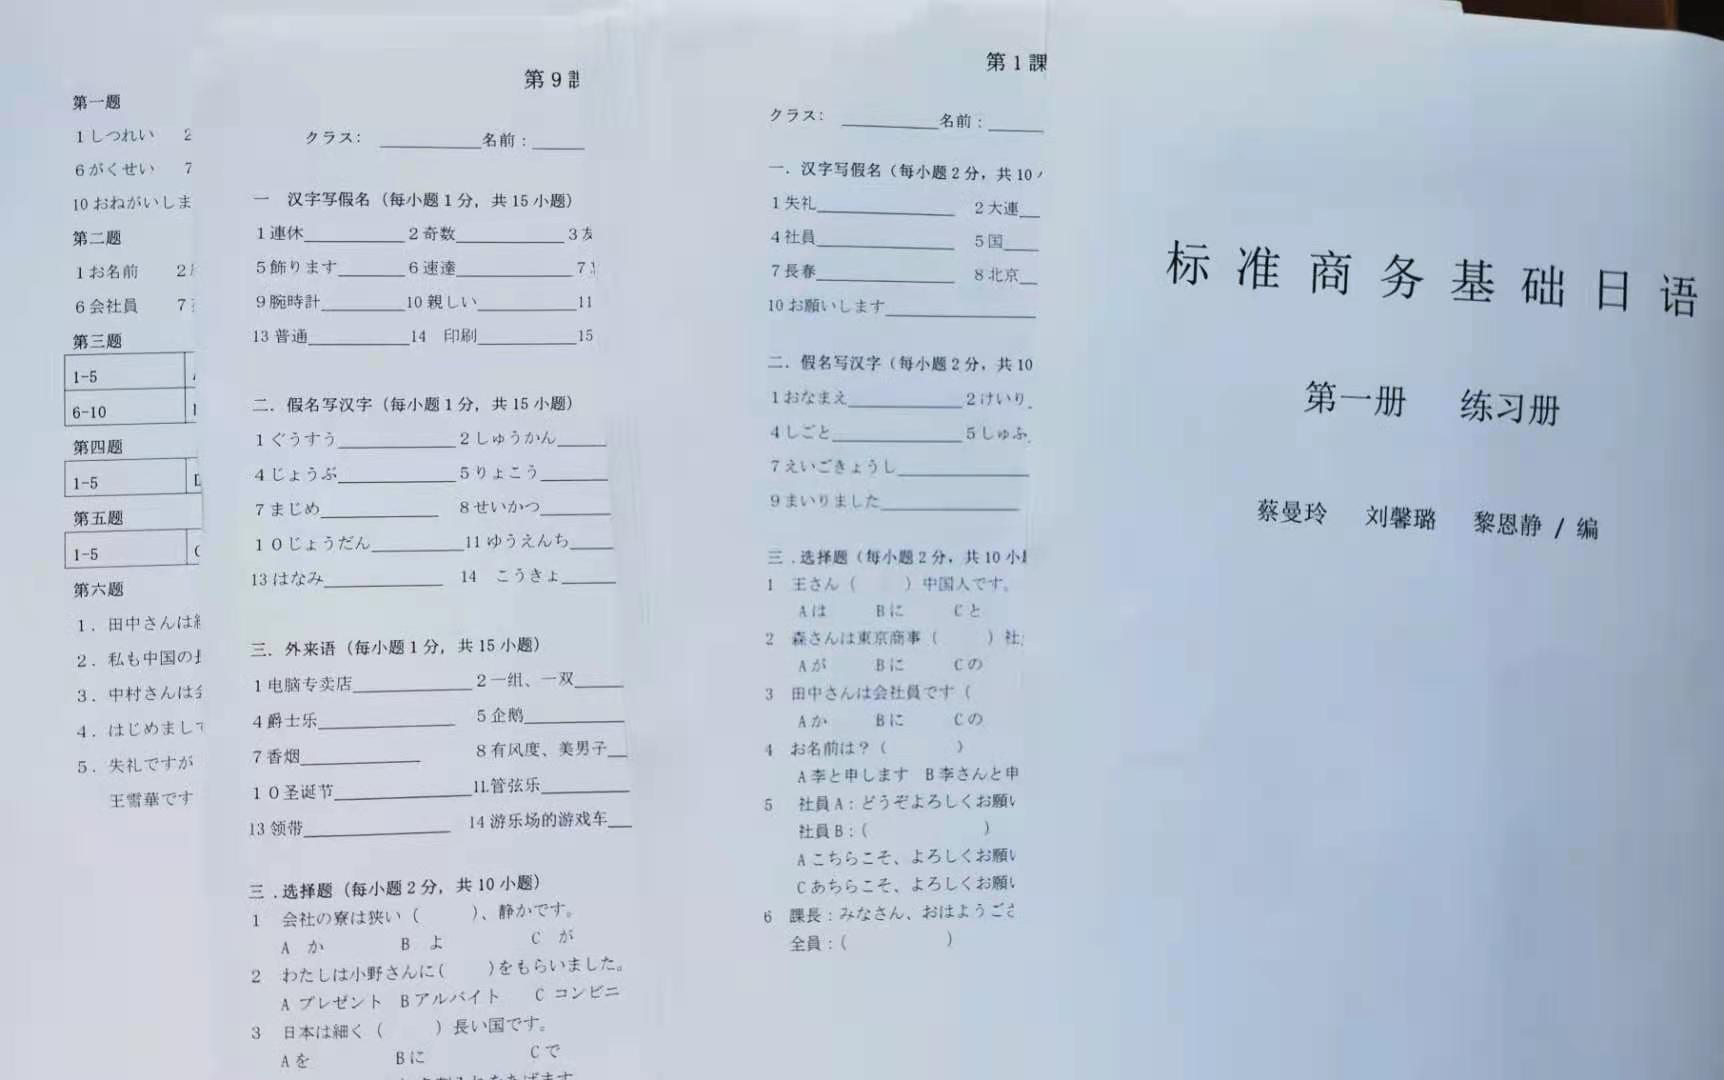 第一题
1しつれい 2
6がくせい 7
10おねがいしま
第二题
1お名前 2
6会社員 7
第三题
1-5
6-10
第四题
1-5
第五题
1-5
第六题
1．田中さんは
2．私も中国の
3．中村さんは
4．はじめまして
5．失礼ですが
王雪華です
第9
クラス：__________名前：_____
一 汉字写假名（每小题1分，共15小题）
1連休__________2奇数__________3
5飾ります_______6速達__________7
9腕時計________10親しい__________11
13普通__________14 印刷__________15
二．假名写汉字（每小题1分，共15小题）
1ぐうすう____________2しゅうかん_____
4じょうぶ____________5りょこう_______
7まじめ____________ 8せいかつ_______
10じょうだん_________11ゆうえんち____
13はなみ____________ 14 こうきょ_____
三．外来语（每小题1分，共15小题）
1电脑专卖店____________2一组、一双_____
4爵士乐______________ 5企鹅__________
7香烟____________ 8有风度、美男子__
10圣诞节______________11.管弦乐_________
13领带_______________ 14游乐场的游戏车__
三．选择题（每小题2分，共10小题）
1 会社の寮は狭い（ ）、静かです。
A か B よ C が
2 わたしは小野さんに( )をもらいました。
A プレゼント Bアルバイト C コンビニ
3 日本は細く（ ）長い国です。
Aを Bに Cで
第1課
クラス：__________名前：______
一．汉字写假名（每小题2分，共10
1失礼______________ 2大連__
4社員______________ 5国____
7長春______________ 8北京__
10お願いします________________
二．假名写汉字（每小题2分，共10
1おなまえ____________2けいり
4しごと_____________5しゅふ
7えいごきょうし______________
9まいりました_______________
三．选择题（每小题2分，共10小
1 王さん（ ）中国人です。
Aは Bに Cと
2 森さんは東京商事（ ）社
Aが Bに Cの
3 田中さんは会社員です（
Aか Bに Cの
4 お名前は？（ ）
A李と申します B李さんと申
5 社員A：どうぞよろしくお願い
社員B：（ ）
Aこちらこそ、よろしくお願い
Cあちらこそ、よろしくお願い
6 課長：みなさん、おはようござ
全員：（ ）
标准商务基础日语
第一册 练习册
蔡曼玲 刘馨璐 黎恩静 / 编